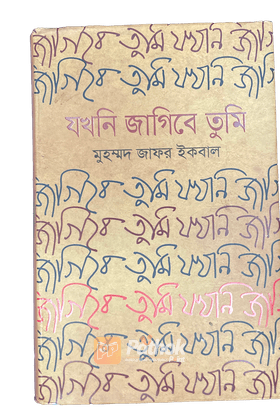 জাগিবে তুমি যখনি জা
জাগিবে তুমি যখনি জা
যখনি জাগিবে তুমি
মুহম্মদ জাফর ইকবাল
জাগিবে তুমি যখনি জা
জাগিবে তুমি যখনি জা
জাগিবে তুমি যখনি জা
জাগিবে তুমি যখনি জা
জাগিবে তুমি যখনি জা
জাগিবে তুমি যখনি জা